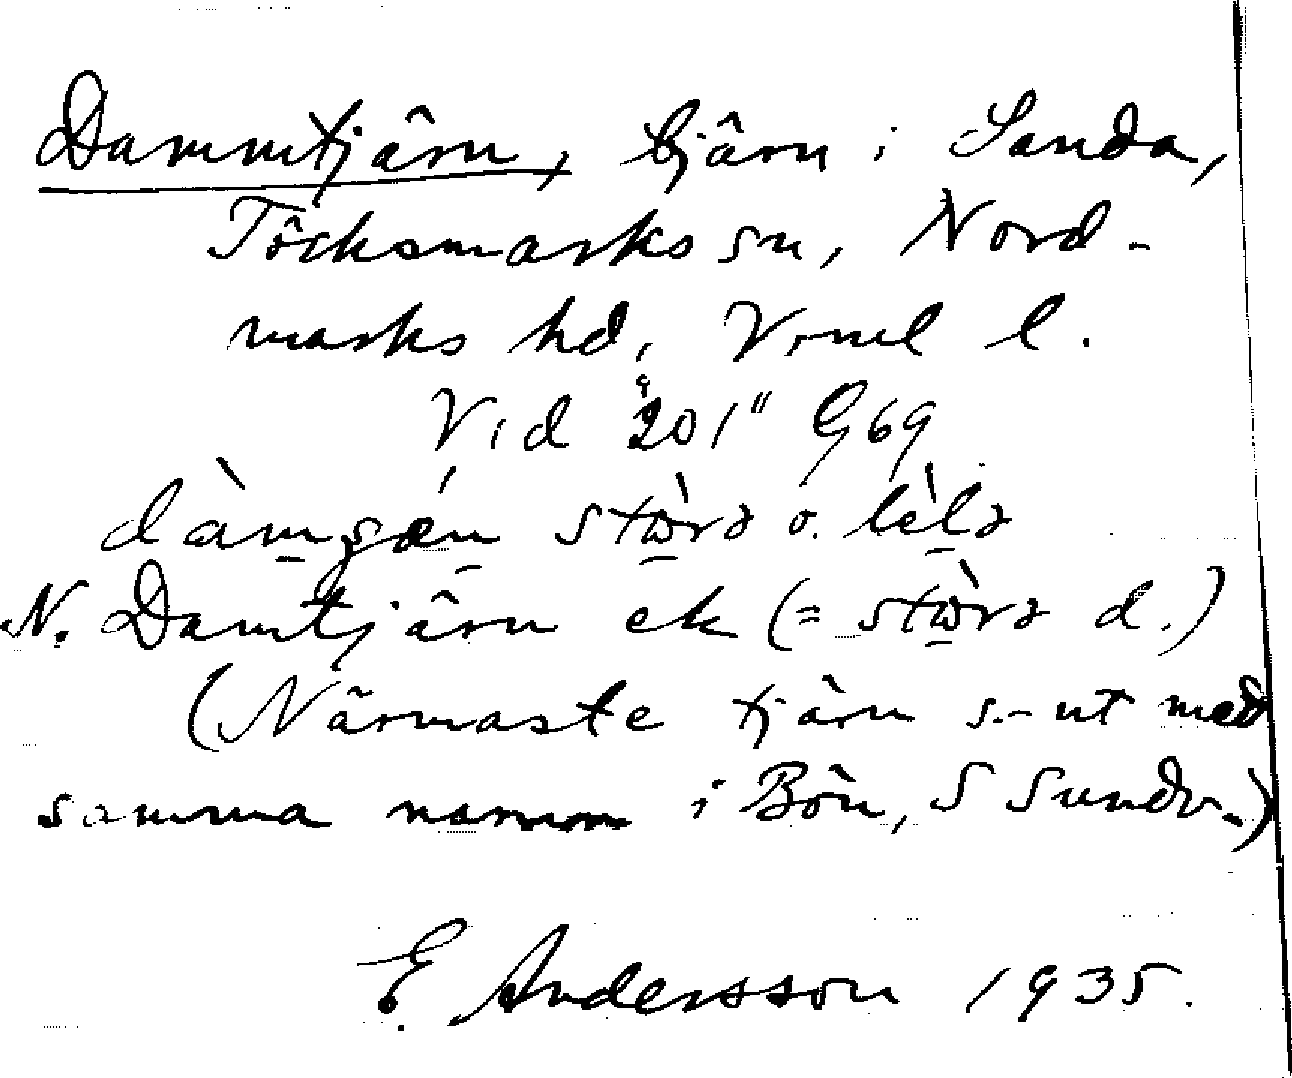 Dammtjärn, tjärn i Sanda,
Töcksmarks sn, Nord-
marks hd, Vrml l.
Vid "201" G69
N. Damtjärn ek (= d.)
(Närmaste tjärn s.-ut med
samma namn i Bön, S Sundv.)
E. Andersson 1935.